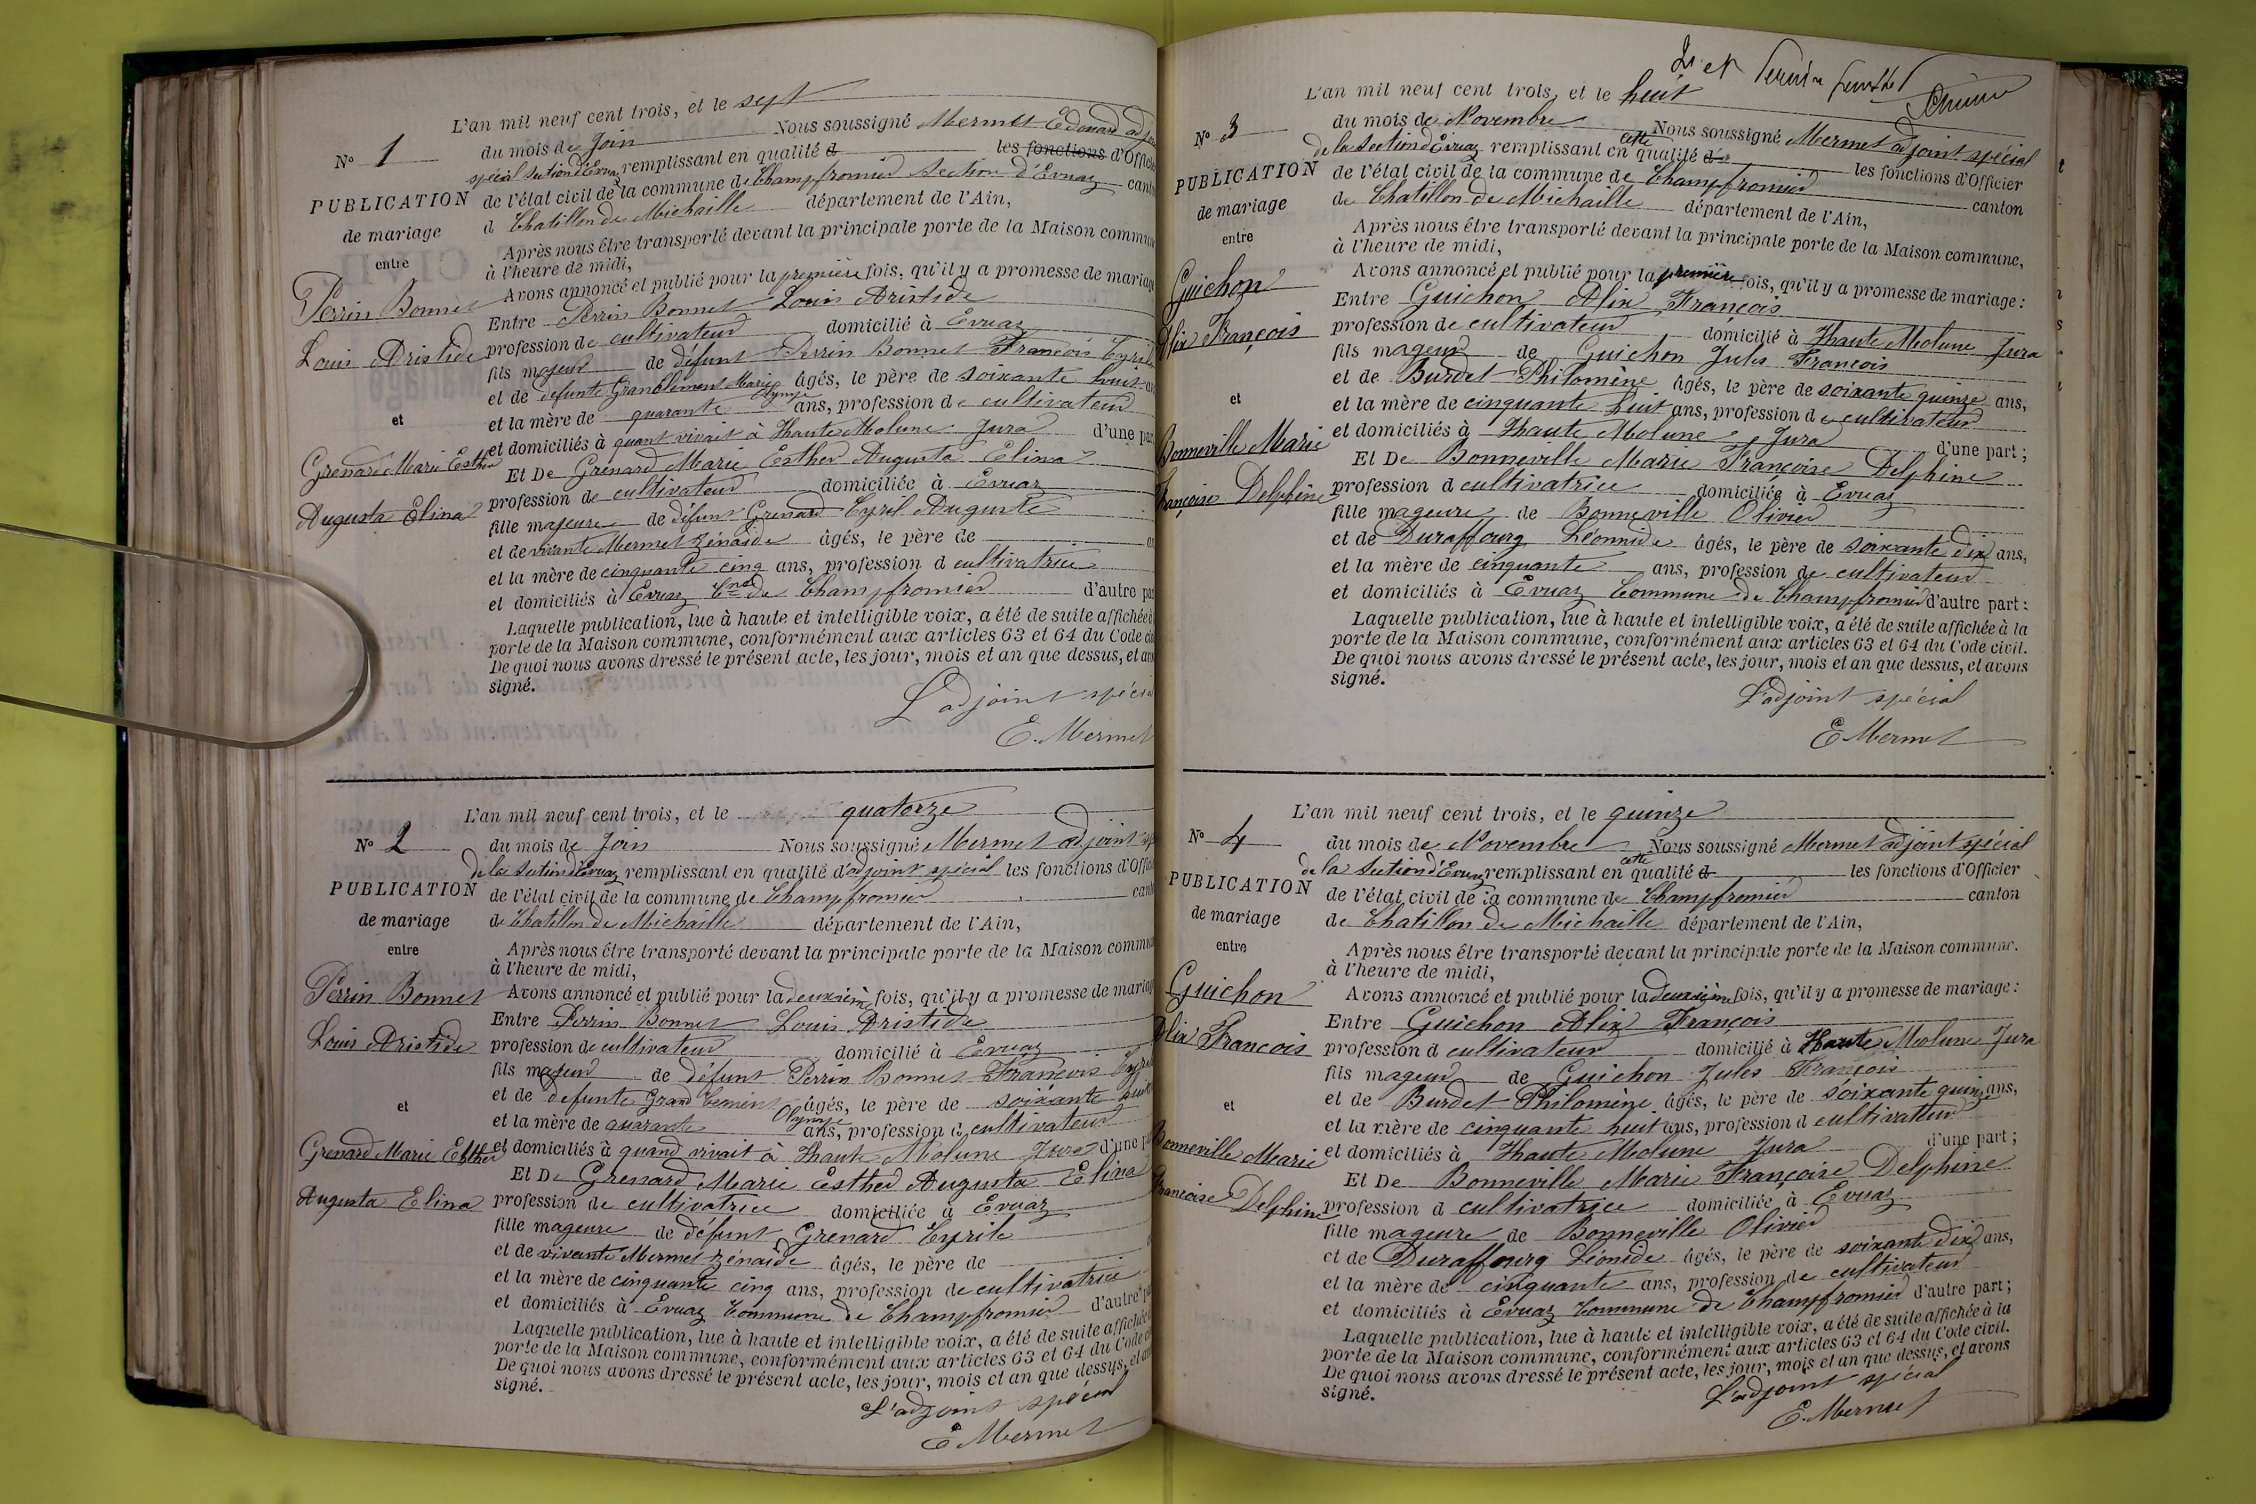 L'an mil neuf cent trois, et le sept
du mois de Join Nous soussigné Mermet Edouard adjoint
spécial section d'Evuaz remplissant en qualité d les fonctions d'Officier
de l'état civil de la commune de Champfromier section d'Evuaz canton
d Chatillon de Michaille département de l'Ain,
Après nous être transporté devant la principale porte de la Maison commune
à l'heure de midi,
Avons annoncé et publié pour la première fois, qu'il y a promesse de mariage
Entre Perrin Bonnet Louis Aristide
profession de cultivateur domicilié à Evuaz
fils majeur de défunt Perrin Bonnet François Cyrile
et de défunte Grandclément Marie Olympe âgés, le père de soixante huit ans
et la mère de quarante ans, profession de cultivateur
et domiciliés à quant vivait à Haute Molune Jura d'une part
Et De Grenard Marie Esther Augusta Elina
profession de cultivateur domiciliée à Evuaz
fille majeure de défunt Grenard Cyril Auguste
et de vivante Mermet Zénaide âgés, le père de
et la mère de cinquante cinq ans, profession d cultivatrice
et domiciliés à Evuaz Cne de Champfromier d'autre part
Laquelle publication, lue à haute et intelligible voix, a été de suite affichée à
porte de la Maison commune, conformément aux articles 63 et 64 du Code civil
De quoi nous avons dressé le présent acte, les jour, mois et an que dessus, et avons
signé.
L'adjoint spécial
E. Mermet
N° 1
PUBLICATION
de mariage
entre
Perrin Bonnet
Louis Aristide
et
Grenard Marie Esther
Augusta Elina
L'an mil neuf cent trois, et le quatorze
du mois de Join Nous soussigné Mermet adjoint sp
de la section d'Evuaz remplissant en qualité d'adjoint spécial les fonctions d'Officier
de l'état civil de la commune de Champfromier canton
de Chatillon de Michaille département de l'Ain,
Après nous être transporté devant la principale porte de la Maison commune
à l'heure de midi,
Avons annoncé et publié pour la deuxième fois, qu'il y a promesse de mariage
Entre Perrin Bonnet Louis Aristide
profession de cultivateur domicilié à Evuaz
fils majeur de défunt Perrin Bonnet François Cyrile
et de defunte Grand Clément Olympe âgés, le père de soixante huit
et la mère de quarante ans, profession d cultivateur
et domiciliés à quand vivait à Haute Molune Jura d'une part
Et De Grenard Marie Esther Augusta Elina
profession de cultivatrice domiciliée à Evuaz
fille mageure de défunt Grenard Cyrile
et de vivante Mermet Zénaïde âgés, le père de
et la mère de cinquante cinq ans, profession de cultivatrice
et domiciliés à Evuaz Commune de Champfromier d'autre part
Laquelle publication, lue à haute et intelligible voix, a été de suite affichée à
porte de la Maison commune, conformément aux articles 63 et 64 du Code
De quoi nous avons dressé le présent acte, les jour, mois et an que dessus, et avons
signé.
L'adjoint spécial
E Mermet
N° 2
PUBLICATION
de mariage
entre
Perrin Bonnet
Louis Aristide
et
Grenard Marie Esther
Augusta Elina
L'an mil neuf cent trois, et le huit
du mois de Novembre Nous soussigné Mermet adjoint spécial
de la section d'Evuaz remplissant en cette qualité d'a les fonctions d'Officier
de l'état civil de la commune de Champfromier canton
de Chatillon de Michaille département de l'Ain,
Après nous être transporté devant la principale porte de la Maison commune,
à l'heure de midi,
Avons annoncé et publié pour la première fois, qu'il y a promesse de mariage :
Entre Guichon Alix François
profession de cultivateur domicilié à Haute Molune Jura
fils mageur de Guichon Jules François
et de Burdet Philomène âgés, le père de soixante quinze ans,
et la mère de cinquante huit ans, profession de cultivateur
et domiciliés à Haute Molune, Jura d'une part ;
Et De Bonneville Marie Françoise Delphine
profession d cultivatrice domiciliée à Evuaz
fille mageure de Bonneville Olivier
et de Duraffourg Léonnide âgés, le père de soixante dix ans,
et la mère de cinquante ans, profession de cultivateur
et domiciliés à Evuaz Commune de Champfromier d'autre part :
Laquelle publication, lue à haute et intelligible voix, a été de suite affichée à la
porte de la Maison commune, conformément aux articles 63 et 64 du Code civil.
De quoi nous avons dressé le présent acte, les jour, mois et an que dessus, et avons
signé.
L'adjoint spécial
E Mermet
N° 3
PUBLICATION
de mariage
entre
Guichon
Alix François
et
Bonneville Marie
Françoise Delphine
L'an mil neuf cent trois, et le quinze
du mois de Novembre Nous soussigné Mermet adjoint spécial
de la section d'Evuaz remplissant en cette qualité d les fonctions d'Officier
de l'état civil de la commune de Champfromier canton
de Chatillon de Michaille département de l'Ain,
Après nous être transporté devant la principale porte de la Maison commune.
à l'heure de midi,
Avons annoncé et publié pour la deuxième fois, qu'il y a promesse de mariage :
Entre Guichon Alix François
profession d cultivateur domicilié à Haute Molune Jura
fils mageur de Guichon Jules François
et de Burdet Philomène âgés, le père de soixante quinze ans,
et la mère de cinquante huit ans, profession d cultivateur
et domiciliés à Haute Molune Jura d'une part ;
Et De Bonneville Marie Françoise Delphine
profession d cultivatrice domiciliée à Evuaz
fille mageure de Bonneville Olivier
et de Duraffourg Léonide âgés, le père de soixante dix ans,
et la mère de cinquante ans, profession de cultivateur
et domiciliés à Evuaz Commune de Champfromier d'autre part ;
Laquelle publication, lue à haute et intelligible voix, a été de suite affichée à la
porte de la Maison commune, conformément aux articles 63 et 64 du Code civil.
De quoi nous avons dressé le présent acte, les jour, mois et an que dessus, et avons
signé.
L'adjoint spécial
E. Mermet
N° 4
PUBLICATION
de mariage
entre
Guichon
Alix François
et
Bonneville Marie
Françoise Delphine